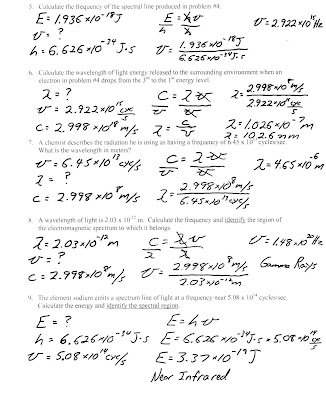 5. Calculate the frequency of the spectral line produced in problem #4.
E = 1.936 x10⁻¹⁸ J
E = hν
h h
ν = 2.922 x10¹⁵ Hz
ν = ?
h = 6.626 x10⁻³⁴ J·s
ν = 1.936 x10⁻¹⁸ J
6.626 x10⁻³⁴ J·s
6. Calculate the wavelength of light energy released to the surrounding environment when an
electron in problem #4 drops from the 3rd to the 1st energy level.
λ = ?
C = λν
ν ν
λ = 2.998 x10⁸ m/s
2.922 x10¹⁵ cyc/s
ν = 2.922 x10¹⁵ cyc/s
C = 2.998 x10⁸ m/s
λ = c/ν
λ = 1.026 x10⁻⁷ m
λ = 102.6 nm
7. A chemist describes the radiation he is using as having a frequency of 6.45 x 10¹³ cycles/sec.
What is the wavelength in meters?
ν = 6.45 x10¹³ cyc/s
C = λν
ν ν
λ = 4.65 x10⁻⁶ m
λ = ?
C = 2.998 x10⁸ m/s
λ = 2.998 x10⁸ m/s
6.45 x10¹³ cyc/s
8. A wavelength of light is 2.03 x 10⁻¹² m. Calculate the frequency and identify the region of
the electromagnetic spectrum to which it belongs.
λ = 2.03 x10⁻¹² m
C = λν
λ λ
ν = 1.48 x10²⁰ Hz
ν = ?
C = 2.998 x10⁸ m/s
ν = 2.998 x10⁸ m/s
2.03 x10⁻¹² m
Gamma Rays
9. The element sodium emits a spectrum line of light at a frequency near 5.08 x 10¹⁴ cycles/sec.
Calculate the energy and identify the spectral region.
E = ?
E = hν
h = 6.626 x10⁻³⁴ J·s
E = 6.626 x10⁻³⁴ J·s x 5.08 x10¹⁴ cyc/s
ν = 5.08 x10¹⁴ cyc/s
E = 3.37 x10⁻¹⁹ J
Near Infrared